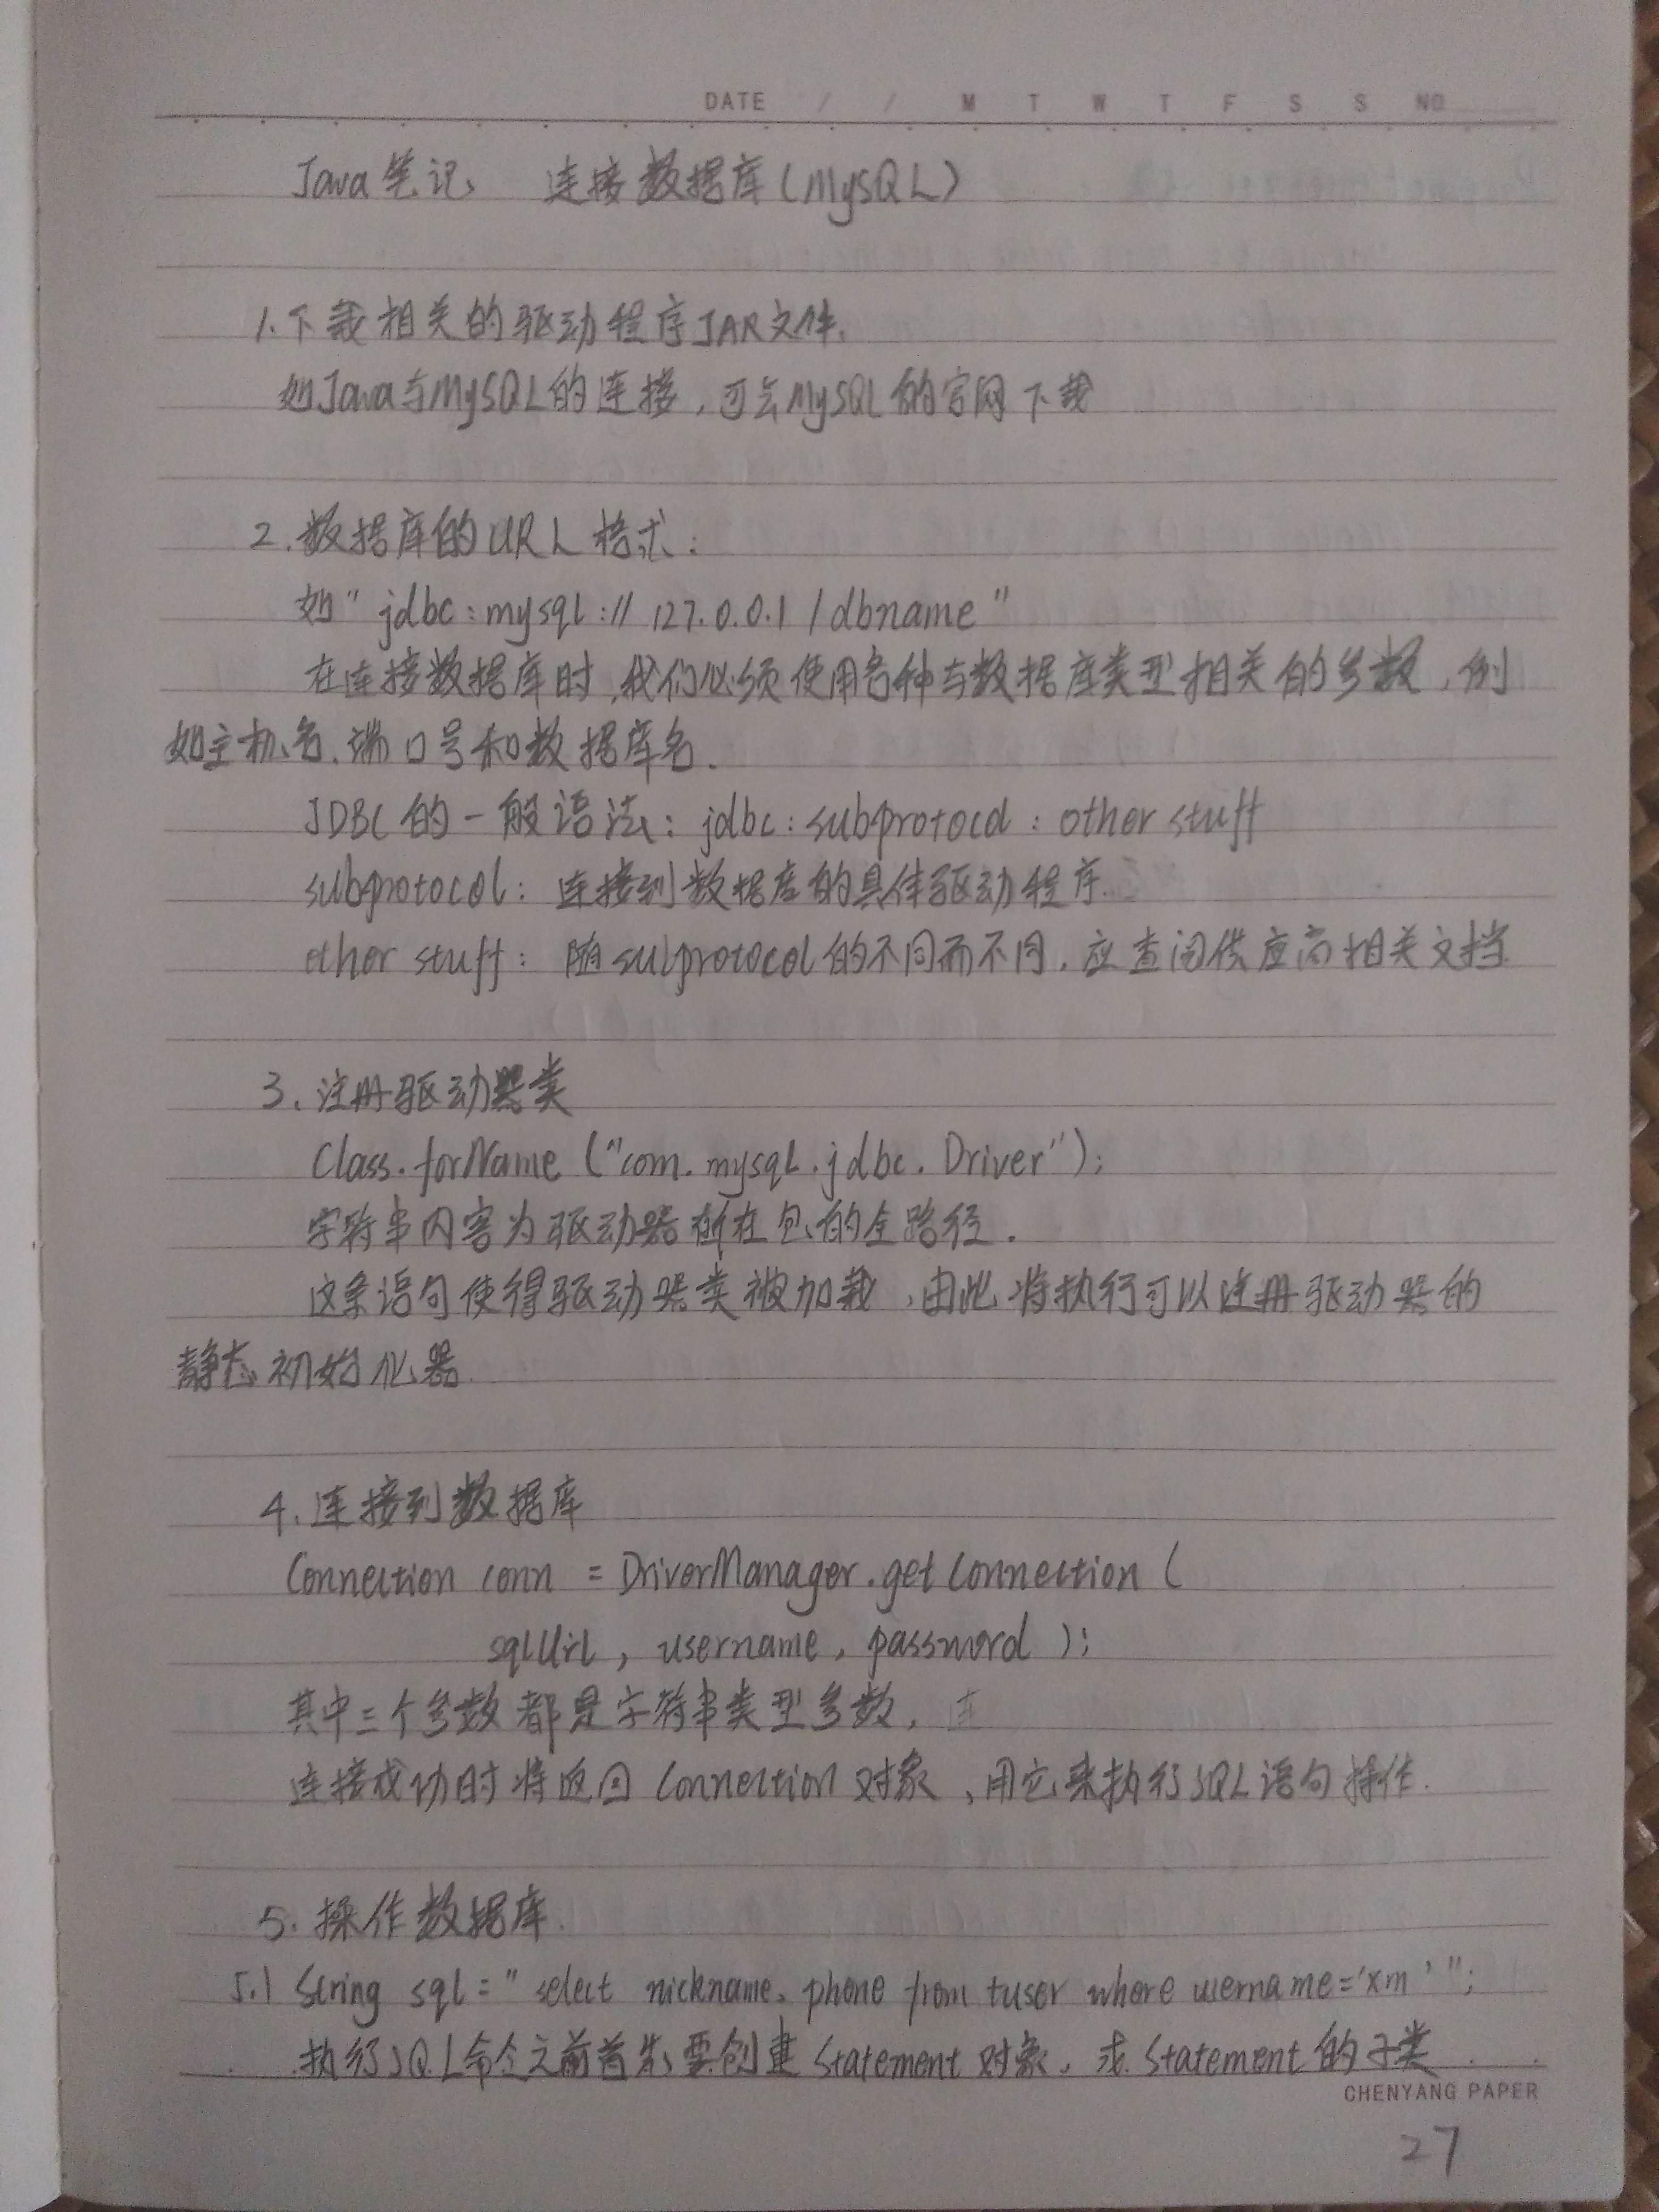 DATE / / M T W T F S S NO.
Java笔记 连接数据库(MySQL)
1.下载相关的驱动程序JAR文件.
如Java与MySQL的连接,可去MySQL的官网下载
2.数据库的URL格式:
如"jdbc:mysql://127.0.0.1/dbname"
在连接数据库时,我们必须使用各种与数据库类型相关的参数,例
如主机名、端口号和数据库名.
JDBC的一般语法: jdbc:subprotocol:other stuff
subprotocol: 连接到数据库的具体驱动程序.
other stuff: 随subprotocol的不同而不同,应查阅供应商相关文档
3、注册驱动器类
Class.forName("com.mysql.jdbc.Driver");
字符串内容为驱动器所在包的全路径.
这条语句使得驱动器类被加载,由此将执行可以注册驱动器的
静态初始化器.
4、连接到数据库
Connection conn = DriverManager.getConnection(
sqlUrl, username, password);
其中三个参数都是字符串类型参数, 连
连接成功时将返回Connection对象,用它来执行SQL语句操作.
5. 操作数据库.
5.1 String sql="select nickname, phone from tuser where username='xm'";
执行SQL命令之前首先要创建Statement对象,或Statement的子类
CHENYANG PAPER
27